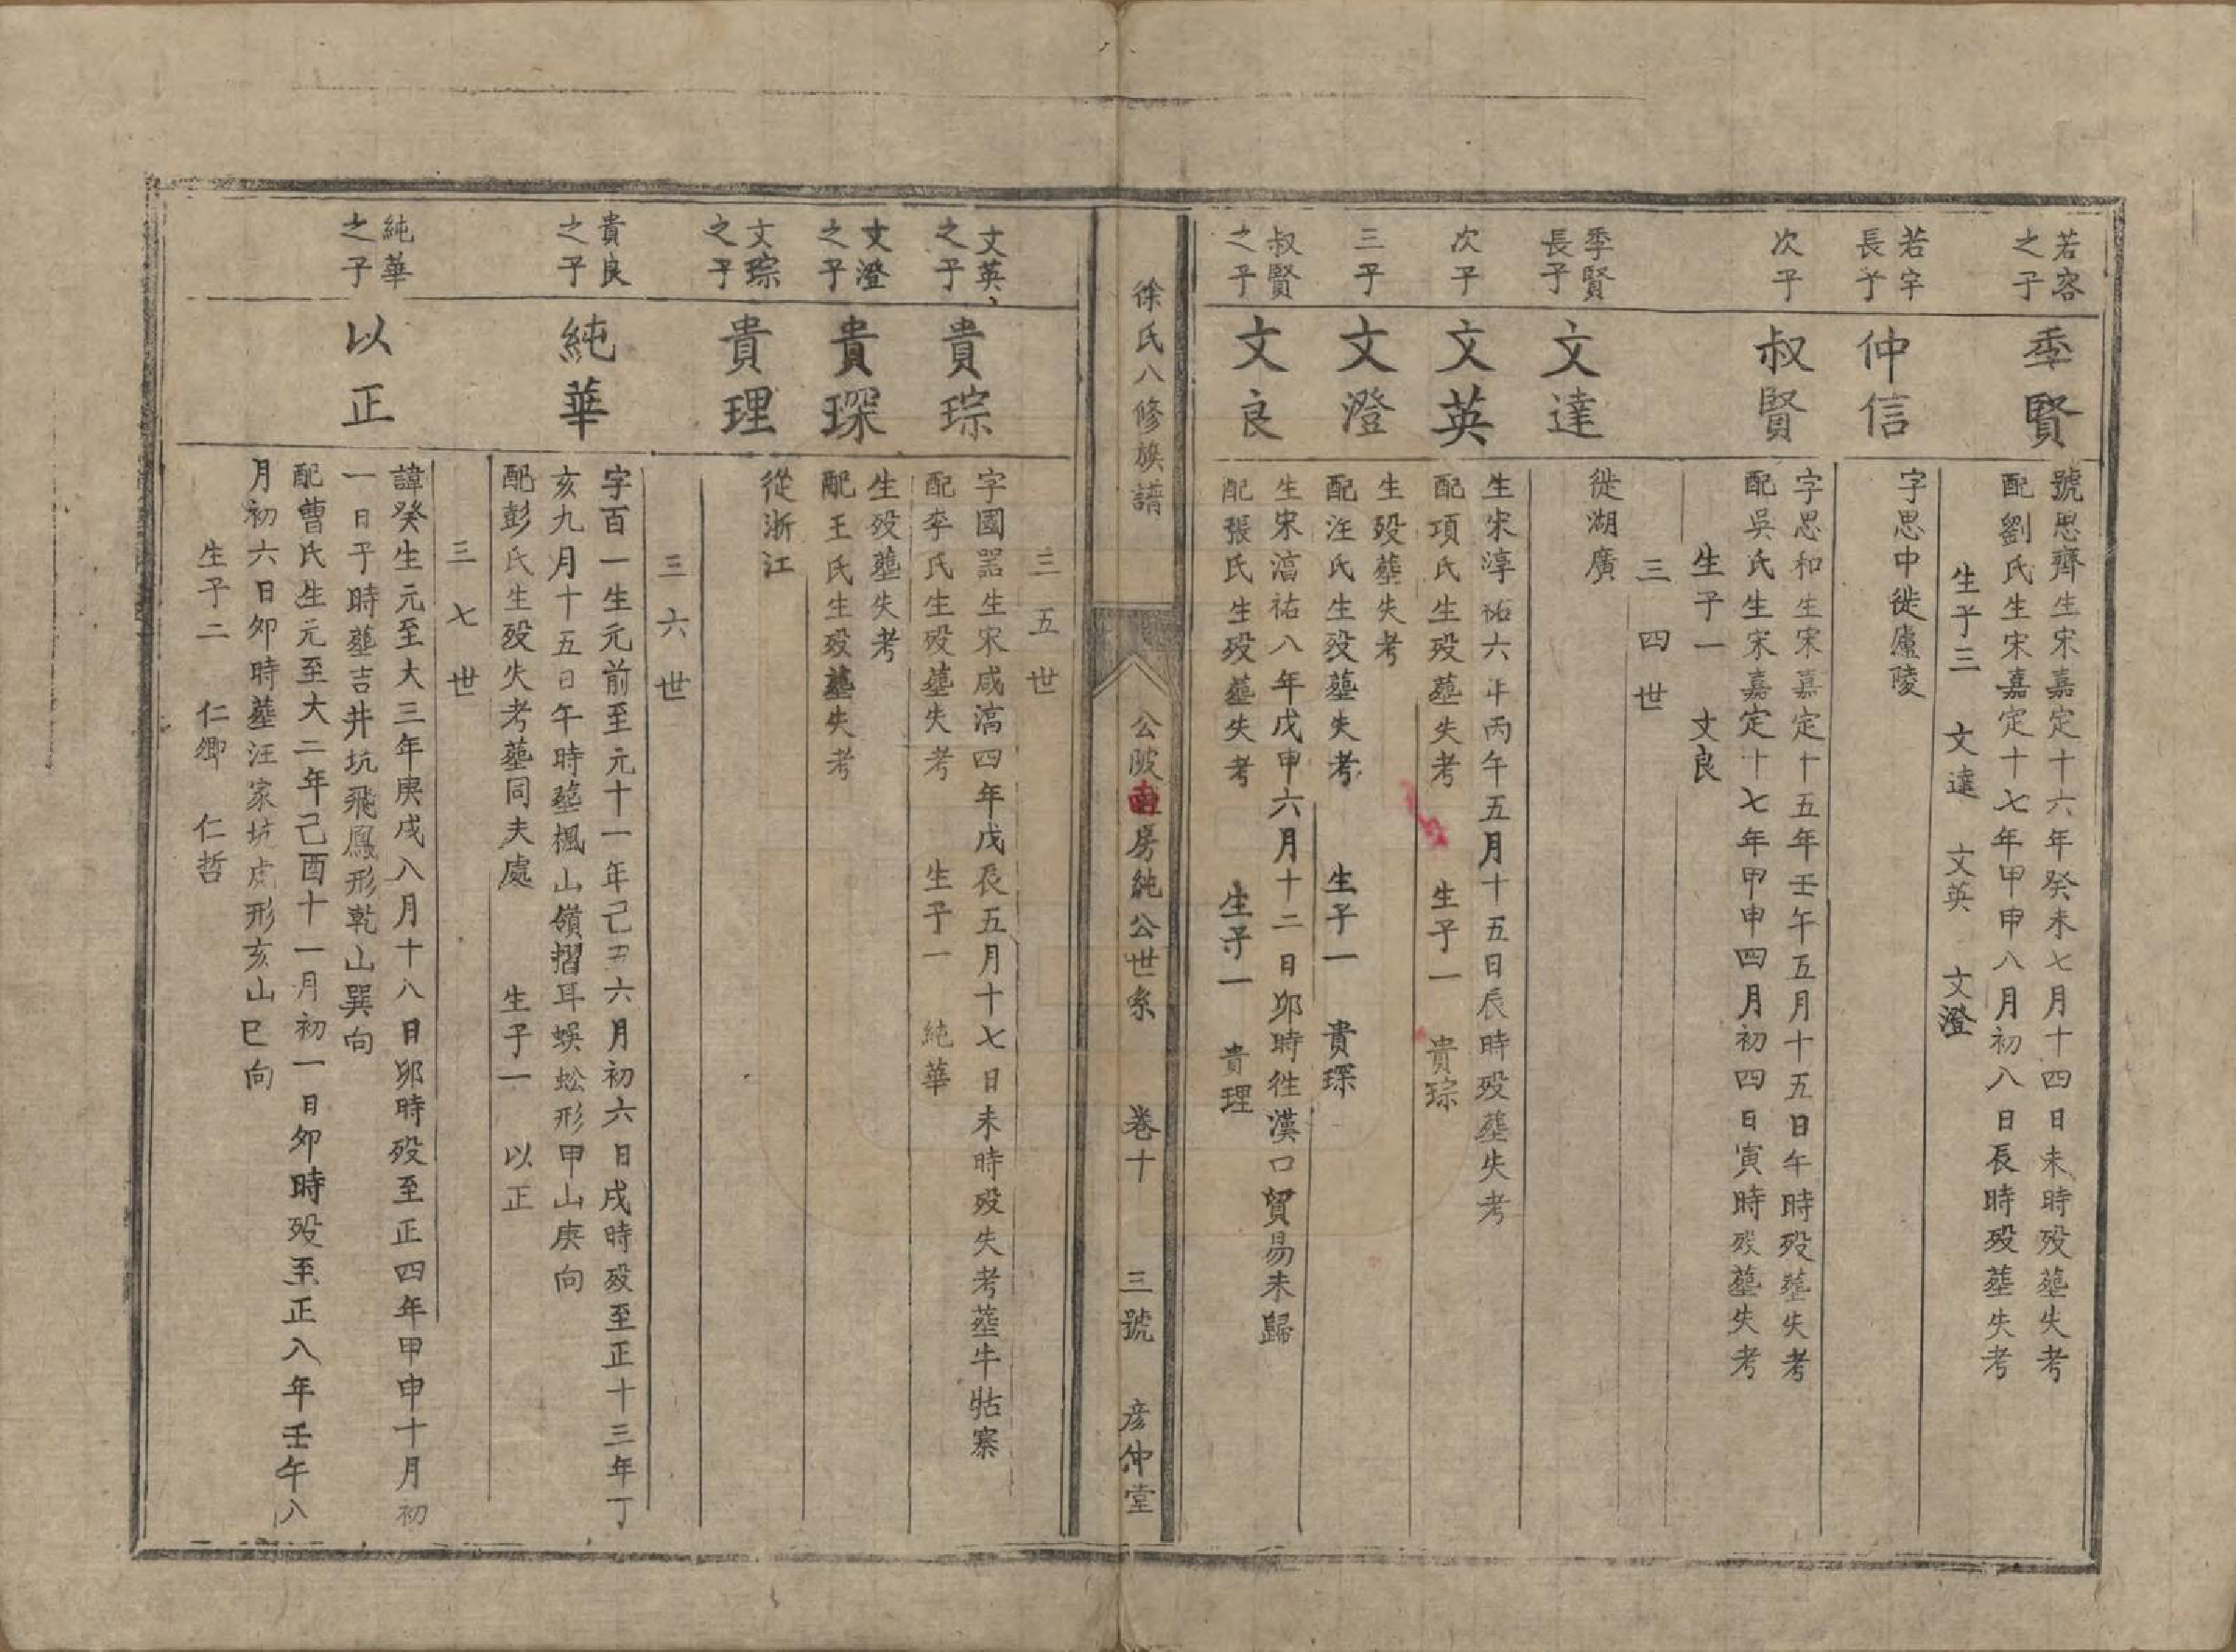 若容
之子
季賢
號思齊生宋嘉定十六年癸未七月十四日未時殁塟失考
配劉氏生宋嘉定十七年甲申八月初八日辰時殁塟失考
生子三　文達　文英　文澄
若宇
長子
仲信
字思中徙廬陵
次子
叔賢
字思和生宋嘉定十五年壬午五月十五日午時殁塟失考
配吳氏生宋嘉定十七年甲申四月初四日寅時殁塟失考
生子一　文良
三四世
季賢
長子
文達
徙湖廣
次子
文英
生宋淳祐六年丙午五月十五日辰時殁塟失考
配項氏生殁塟失考　生子一　貴琮
三子
文澄
生殁塟失考
配汪氏生殁塟失考　生子一　貴琛
叔賢
之子
文良
生宋淳祐八年戊申六月十二日卯時徃漢口貿易未歸
配張氏生殁塟失考　生子一　貴理
徐氏八修族譜　公陂南房純公世系　卷十　三號　彦仲堂
三五世
文英
之子
貴琮
字國器生宋咸淳四年戊辰五月十七日未時殁失考塟牛牯寨
配李氏生殁塟失考　生子一　純華
文澄
之子
貴琛
生殁塟失考
配王氏生殁塟失考
文琮
之子
貴理
從浙江
三六世
貴良
之子
純華
字百一生元前至元十一年己丑六月初六日戌時殁至正十三年丁
亥九月十五日午時塟楓山嶺摺耳蜈蚣形甲山庚向
配彭氏生殁失考塟同夫處　生子一　以正
三七世
純華
之子
以正
諱癸生元至大三年庚戌八月十八日卯時殁至正四年甲申十月初
一日子時塟吉井坑飛鳳形乾山巽向
配曹氏生元至大二年己酉十一月初一日卯時殁至正八年壬午八
月初六日卯時塟汪家坑虎形亥山巳向
生子二　仁卿　仁哲